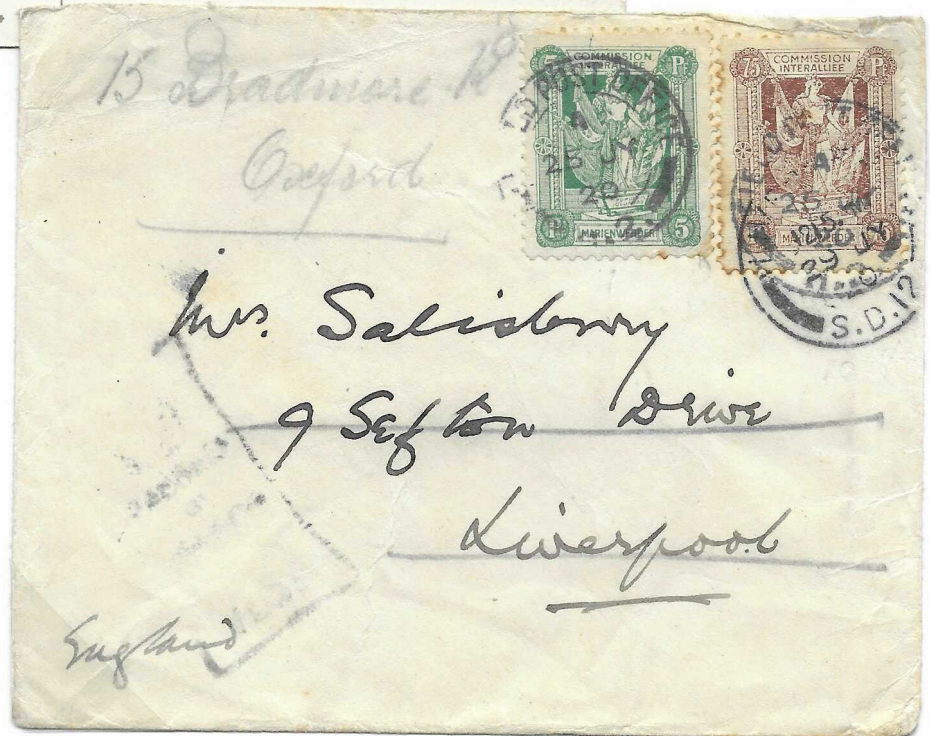 15 Bradmore Rd
Oxford
COMMISSION
INTERALLIÉE
5 P
MARIENWERDER
5
75 COMMISSION P
INTERALLIÉE
MARIENWERDER
POST OFFICE
25 JY
20
S.D.12
Mrs. Salisbury
9 Sefton Drive
Liverpool
England